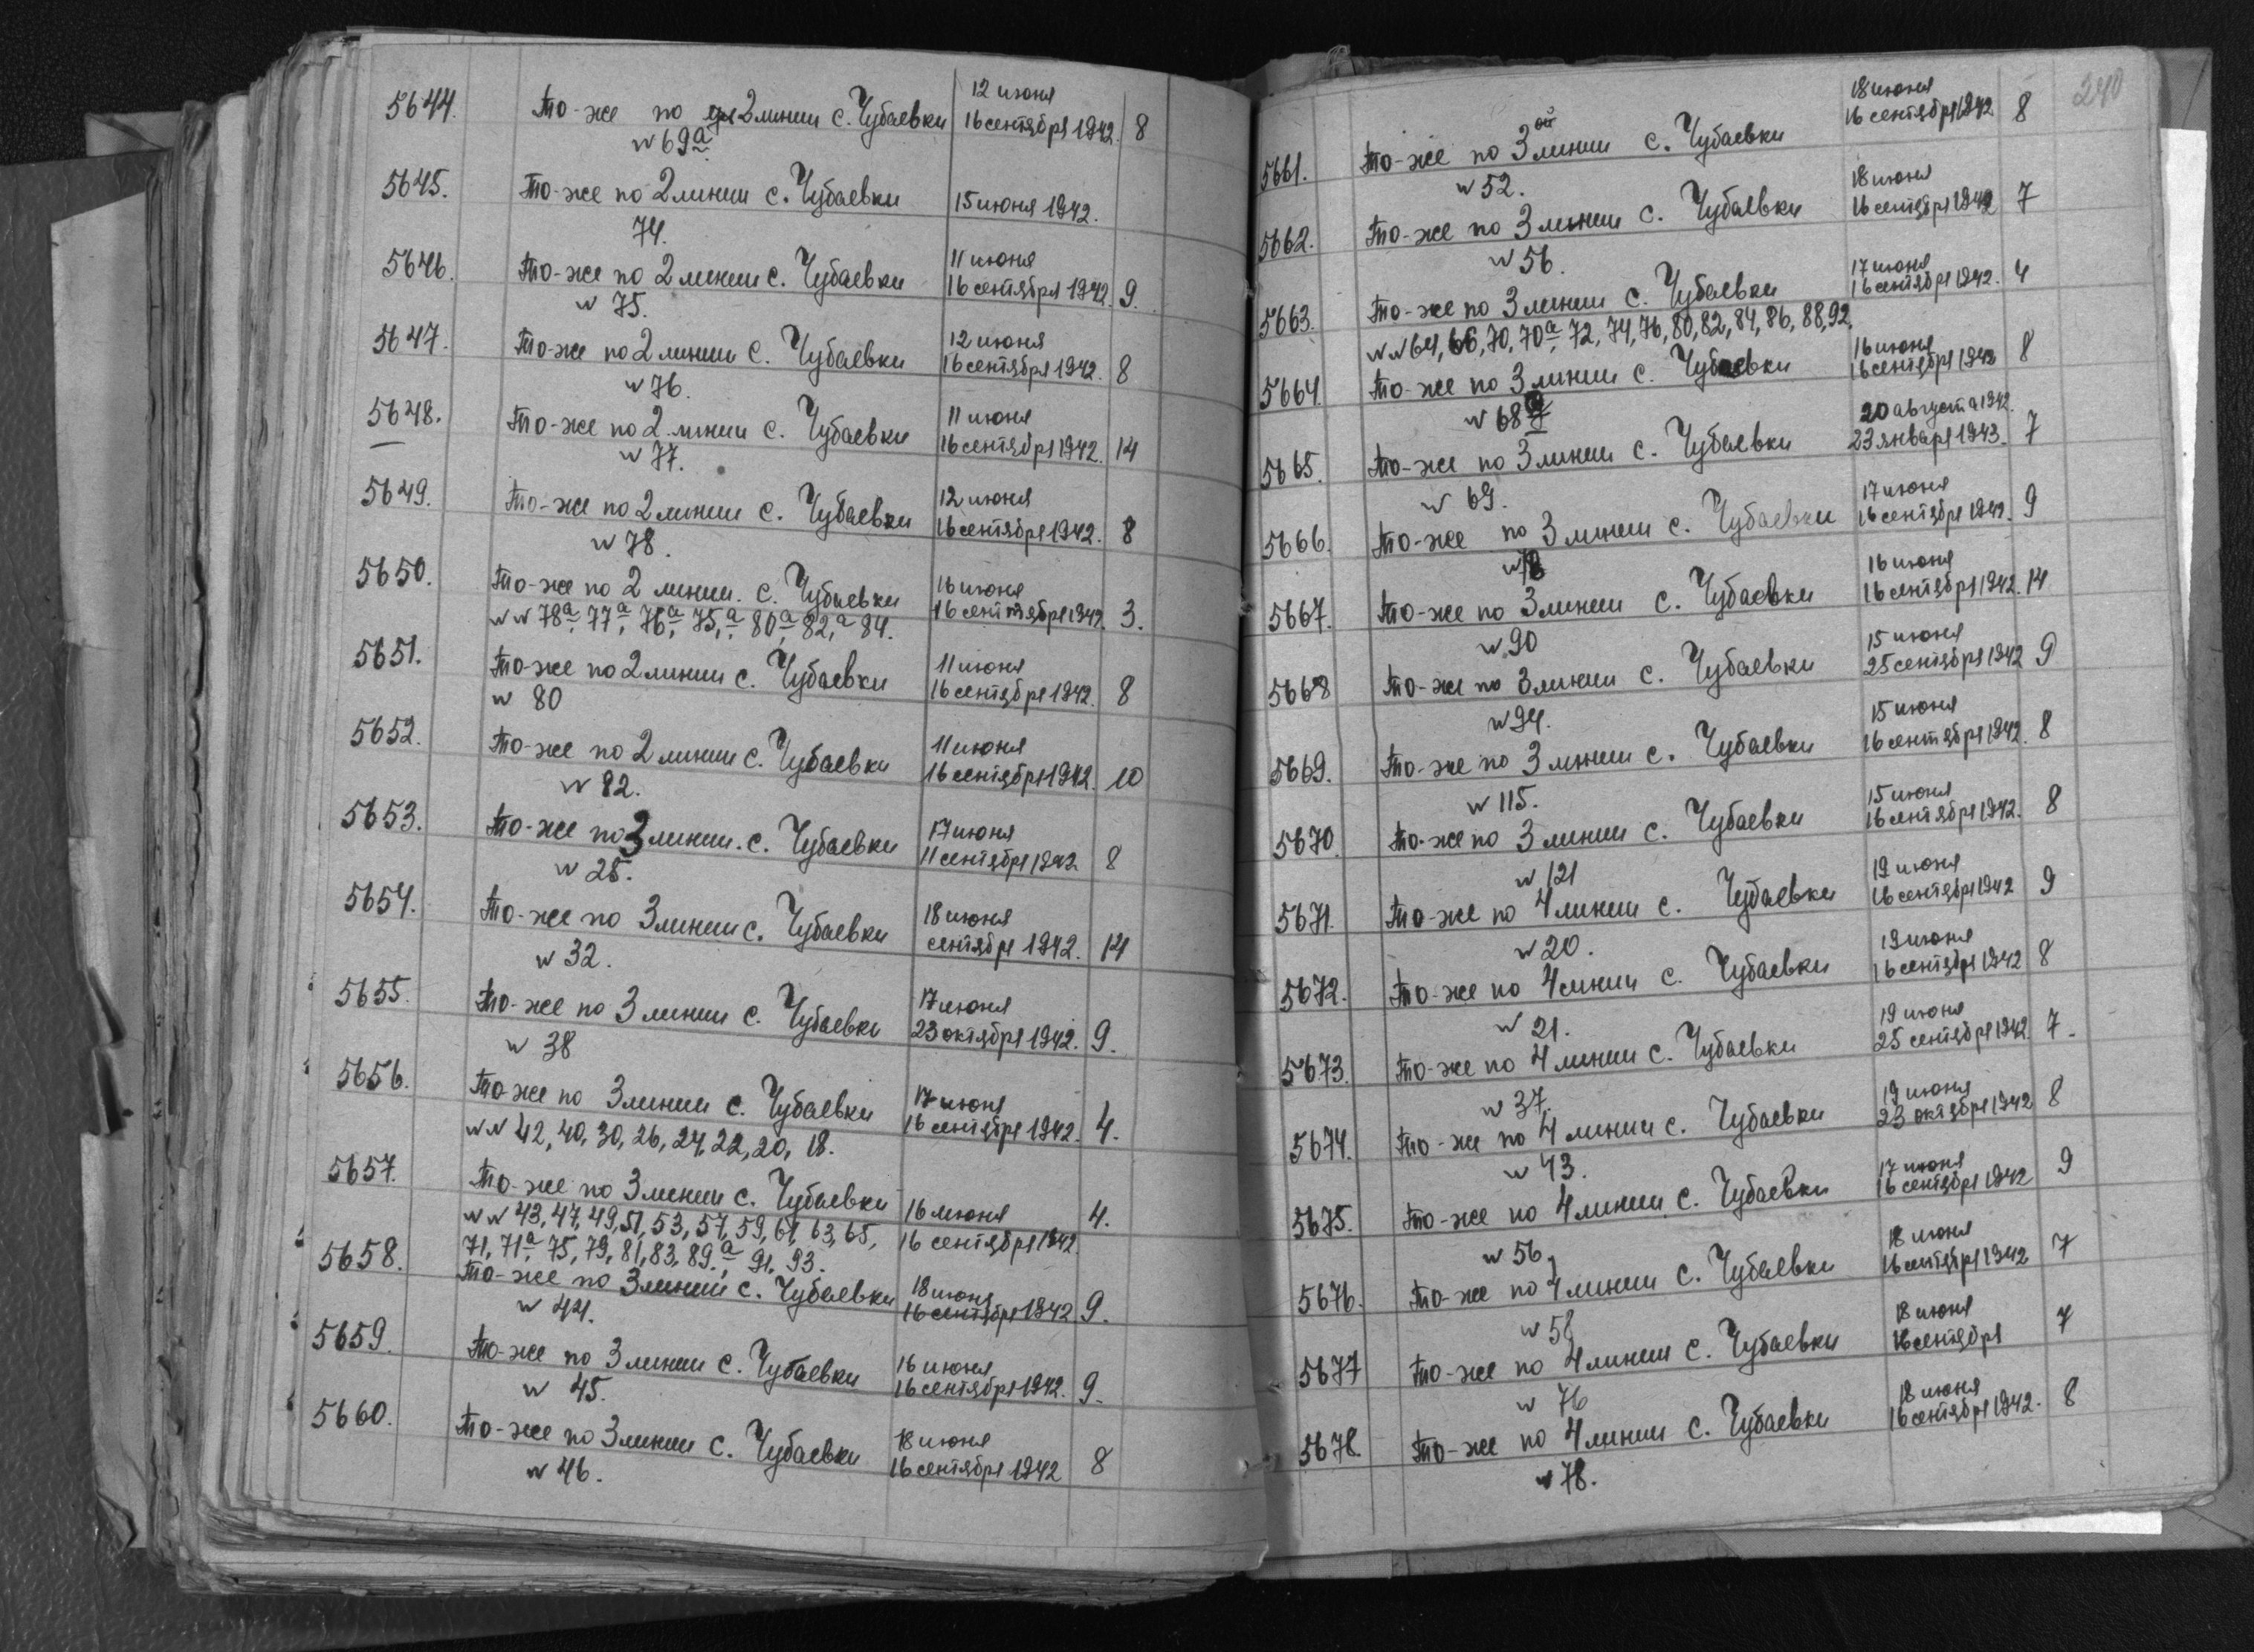 5644. То-же по 2 линии с. Чубаевки 12 июня
16 сентября 1942. 8
№ 69а
5645. То-же по 2 линии с. Чубаевки 15 июня 1942.
74.
5646. То-же по 2 линии с. Чубаевки 11 июня
16 сентября 1942. 9.
№ 75.
5647. То-же по 2 линии с. Чубаевки 12 июня
16 сентября 1942. 8
№ 76.
5648. То-же по 2 линии с. Чубаевки 11 июня
16 сентября 1942. 14
№ 77.
5649. То-же по 2 линии с. Чубаевки 12 июня
16 сентября 1942. 8
№ 78.
5650. То-же по 2 линии. с. Чубаевки 16 июня
16 сентября 1942. 3.
№№ 78а, 77а, 76а, 75,а 80а, 82,а 84.
5651. То-же по 2 линии с. Чубаевки 11 июня
16 сентября 1942. 8
№ 80
5652. То-же по 2 линии с. Чубаевки 11 июня
16 сентября 1942. 10
№ 82.
5653. То-же по 3 линии. с. Чубаевки 17 июня
11 сентября 1942 8
№ 25.
5654. То-же по 3 линии с. Чубаевки 18 июня
сентября 1942. 14
№ 32.
5655. То-же по 3 линии с. Чубаевки 17 июня
23 октября 1942. 9.
№ 38
5656. То-же по 3 линии с. Чубаевки 17 июня
16 сентября 1942. 4.
№№ 42, 40, 30, 26, 24, 22, 20, 18.
5657. То-же по 3 линии с. Чубаевки 16 июня 4.
№№ 43, 47, 49, 51, 53, 57, 59, 61, 63, 65, 16 сентября 1942.
71, 71а, 75, 79, 81, 83, 89.а, 91, 93.
5658. То-же по 3 линии с. Чубаевки 18 июня
16 сентября 1942 9.
№ 44.
5659. То-же по 3 линии с. Чубаевки 16 июня
16 сентября 1942. 9.
№ 45.
5660. То-же по 3 линии с. Чубаевки 18 июня
16 сентября 1942 8
№ 46.
240
5661. То-же по 3ой линии с. Чубаевки 18 июня
16 сентября 1942 8
№ 52.
5662. То-же по 3 линии с. Чубаевки 18 июня
16 сентября 1942 7
№ 56.
5663. То-же по 3 линии с. Чубаевки 17 июня
16 сентября 1942. 4
№№ 64, 66, 70, 70а, 72, 74, 76, 80, 82, 84, 86, 88, 92.
5664. То-же по 3 линии с. Чубаевки 16 июня
16 сентября 1942 8
№ 68
5665. То-же по 3 линии с. Чубаевки 20 августа 1942.
23 января 1943. 7
№ 69.
5666. То-же по 3 линии с. Чубаевки 17 июня
16 сентября 1942. 9
№
5667. То-же по 3 линии с. Чубаевки 16 июня
16 сентября 1942. 14
№ 90
5668 То-же по 3 линии с. Чубаевки 15 июня
25 сентября 1942 9
№ 94.
5669. То-же по 3 линии с. Чубаевки 15 июня
16 сентября 1942. 8
№ 115.
5670. То-же по 3 линии с. Чубаевки 15 июня
16 сентября 1942. 8
№ 121
5671. То-же по 4 линии с. Чубаевки 19 июня
16 сентября 1942 9
№ 20.
5672. То-же по 4 линии с. Чубаевки 19 июня
16 сентября 1942 8
№ 21.
5673. То-же по 4 линии с. Чубаевки 19 июня
25 сентября 1942. 7.
№ 37.
5674. То-же по 4 линии с. Чубаевки 19 июня
23 октября 1942 8
№ 43.
5675. То-же по 4 линии с. Чубаевки 17 июня
16 сентября 1942 9
№ 56
5676. То-же по 4 линии с. Чубаевки 18 июня
16 сентября 1942 7
№ 58
5677 То-же по 4 линии с. Чубаевки 18 июня
16 сентября 7
№ 76
5678. То-же по 4 линии с. Чубаевки 18 июня
16 сентября 1942. 8
№ 78.